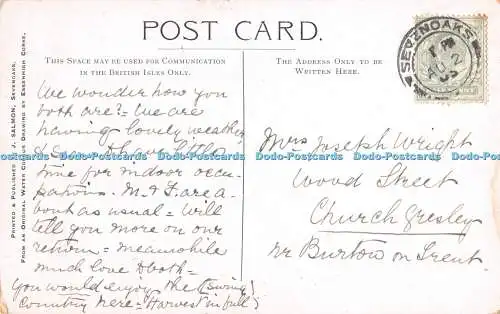 POST CARD.
THIS SPACE MAY BE USED FOR COMMUNICATION
IN THE BRITISH ISLES ONLY.
THE ADDRESS ONLY TO BE
WRITTEN HERE.
SEVENOAKS
PRINTED & PUBLISHED BY J. SALMON, SEVENOAKS,
FROM AN ORIGINAL WATER COLOUR DRAWING BY ESSENHIGH CORKE.
We wonder how you
both are? = We are
having lovely weather
& so have little
time for indoor occu-
pations. M. & F. are a-
bout as usual = Will
tell you more on our
return = meanwhile
much love to both =
you would enjoy the
country here = Harvest in full
Mrs Joseph Wright
Wood Street
Church Gresley
nr Burton on Trent
Dodo-Postcards Dodo-Postcards Dodo-Postcards Dodo-Postcards Dodo-Postcards